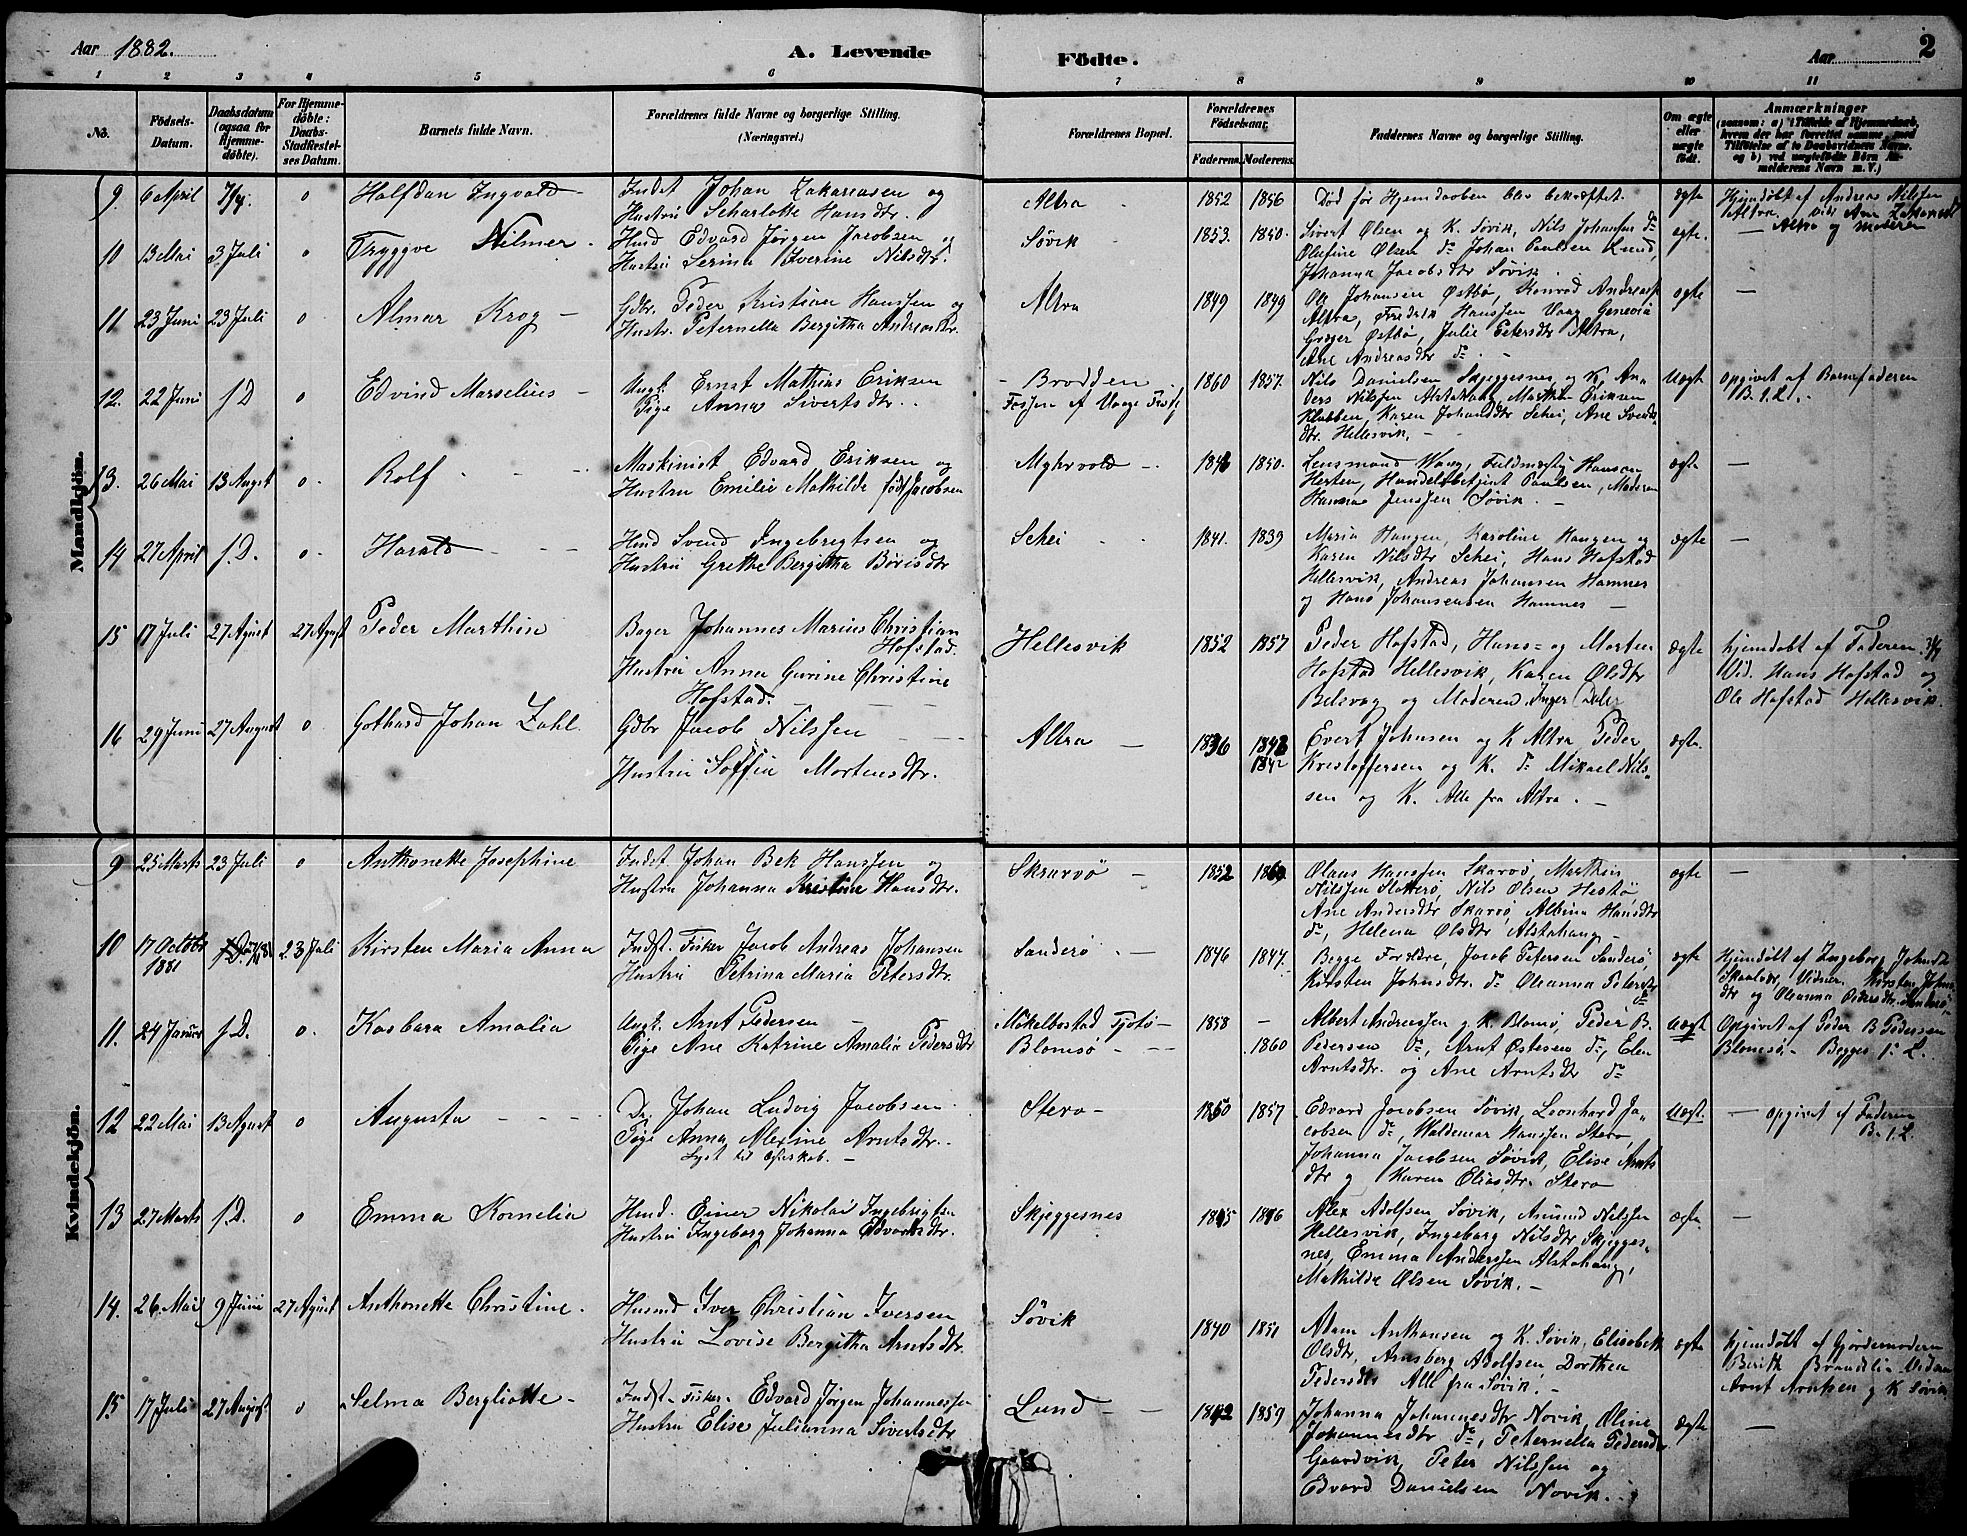 Aar 1882.
A. Levende
Fødte.
Aar
2
1 2 3 4 5 6 7 8 9 10 11
No.
Fødsels-
Datum.
Daabsdatum
(ogsaa for
Hjemme-
døbte).
For Hjemme-
døbte:
Daabs-
Stadfæstel-
ses Datum.
Barnets fulde Navn.
Forældrenes fulde Navne og borgerlige Stilling.
(Næringsvei.)
Forældrenes Bopæl.
Forældrenes
Fødselsaar.
Faderens. Moderens.
Faddernes Navne og borgerlige Stilling.
Om ægte
eller
uægte
født.
Anmærkninger
(saasom: a) i Tilfælde af Hjemmedaab,
hvem der har forrettet samme, med
Tilføielse af to Daabsvidners Navne,
og b) ved uægtefødte Børn An-
melderens Navn m. V.)
Mandkjøn.
9. 6 April 7/4. 0 Halfdan Ingvald
Indst Johan Zakariasen og
Hustru Scharlotte Hansdtr.
Altra 1852 1856
Død før Hjemdaaben blev bekræftet.
ægte
Hjemdøbt af Andreas Nilssen
Altra, Ane
Altra og Moderen
10 13 Mai 3 Juli 0 Tryggve Hilmer
Husd Edvard Jørgen Jacobsen og
Hustru Serina Severine Nilsdtr.
Søvik 1853. 1840.
Sivert Olsen og K. Søvik, Nils Johansen do
Olufine Olsen do Johan Paulsen Lund,
Johanna Jacobsdtr Søvik.
ægte. —
11 23 Juni 23 Juli 0 Almar Krog
Gdbr. Peder Kristian Hanssen og
Hustr. Peternella Bergitha Andreasdtr.
Altra 1849 1849
Ole Johansen Østbø, Konrad Andreas
Altra, Fredrik Hanssen Vaag Genevia
Grøger Østbø, Julie Petersdtr Altra,
Ane Andreasdtr do
ægte —
12. 22 Juni s.D 0 Edvind Marselius
Ungk. Ernst Mathias Eriksen
Pige Anna Sivertsdtr.
Brodden 1860 1857.
Nils Danielsen Skjeggesnes og K, An-
ders Nilssen Alstahaug, Marthin Eriksen
Klubben Karen Johansdtr Schei, Ane Svends
dtr. Hellesvik.
Uægt opgivet af Barnefaderen
B. 1. L.
13. 26 Mai 13 August 0 Rolf
Maskinist Edvard Eriksen og
Hustru Emilie Mathilde født Jacobsen
Myhrvold 1850.
Lensmand Waag, Fuldmægtig Hansen
Hesten, Handelsbetjent Paulsen, Moderen
Hanna Jenssen Søvik.
ægte —
14 27 April s.D. 0 Harald
Husd Svend Ingebregtsen og
Hustru Grethe Bergitha Børisdtr
Schei 1841. 1839
Maria Haugen, Karoline Haugen og
Karen Nilsdtr Schei, Hans Hofstad
Hellesvik, Andreas Johansen Hamnes
og Hans Johansensen Hamnes
ægte —
15 17 Juli 27 August 27 August Peder Marthin
Bager Johannes Marius Christian
Hofstad.
Hustru Anna Gurine Christine
Hofstad.
Hellesvik 1852 1857
Peder Hofstad, Hans= og Morten
Hofstad Hellesvik, Karen Olsdtr
Belsvag og Moderen, Inger
ægte
hjemdøbt af Faderen.
Vid. Hans Hofstad og
Ole Hofstad Hellesvik.
16 29 Juni 27 August 0 Gothard Johan Zahl
Gdbr Jacob Nilssen
Hustru Soffia Mortensdtr.
Altra 1836 1842
Evert Johnsen og K Altra Peder
Kristoffersen og K. do Mikael Nils-
sen og K. Alle fra Altra.
ægte.
Kvindekjøn.
9 25 Marts 23 Juli 0 Anthonette Josephine
Indst Johan Bek Hanssen og
Hustru Johanna Kristine Hansdtr.
Skrarvø 1852 1860
Olaus Hanssen Skarvø, Marthin
Nilssen Slotterø, Nils Olsen Hestø
Ane Andersdtr Skarvø, Albina Hansdtr
do, Helena Olsdtr Alstahaug
ægte —
10 17 Octobr
1881 23 Juli Kirsten Maria Anna
Indst. Fisker Jacob Andreas Johansen
Hustru Petrina Maria Petersdtr.
Sanderø 1846 1847.
Begge Forældre, Jacob Petersen Sanderø,
Kirsten Johnsdtr. do Oleanna Petersdtr
do
ægte
Hjemdøbt af Ingeborg Johnsdtr
Vidner. Kirsten Johns
dtr og Oleanna Pedersdtr. Sanderø,
11. 24 Januar s.D. 0. Kasbara Amalia
Ungk. Arnt Pedersen
Pige Ane Katrine Amalia Pedersdtr
Møkelbostad Tjøtø
Blomsø 1858 1860
Albert Andreassen og K. Blomsø, Peder B.
Pedersen do, Arnt Østesen do, Elen
Arntsdtr. og Ane Arntsdtr do
Uægt
Opgivet af Peder B Pedersen
Blomsø. Begges 1. L.
12 22 Mai 13 August 0 Augusta
Do. Johan Ludvig Jacobsen
Pige Anna Alexine Arntsdtr.
Lyst til Ægteskab.
Stero 1850 1857
Edvard Jacobsen Søvik, Leonhard Ja-
cobsen do, Waldemar Hanssen Stero,
Johanna Jacobsen Søvik, Elise Arnts
dtr og Karen Eliasdtr. Stero
Uægt. — opgivet af Faderen
B. 1. L.
13 27 Marts s.D. 0 Emma Kornelia
Husd. Einer Nikolai Ingebrigtsen
Hustru Ingeborg Johanna Edvardsdtr.
Skjeggesnes
Alex Adolfsen Søvik, Amund Nilssen
Hellesvik, Ingeborg Nilsdtr Skjegges-
nes, Emma Anderssen Alstahaug,
Mathilde Olsen Søvik.
ægte. —
14. 26 Mai 9 Juni 27 August Anthonette Christine.
Husmd Iver Christian Iversen
Hustru Lovise Bergitha Arntsdtr.
Søvik 1840 1851
Adam Anthonsen og K. Søvik, Elisabeth
Olsdtr, Arnsberg Adolfsen Dorthea
Pedersdtr Alle fra Søvik.
ægte
hjemdøbt af Gjordemoderen
Berith Brandslia Vidner
Arnt Arntsen og K Søvik
15 17 Juli 27 August 0 Selma Bergliotte
Indst. Fisker. Edvard Jørgen Johannessen
Hustru Elise Julianna Sivertsdtr
Lund 1859
Johanna Johannesdtr Novik, Oline
Johannesdtr do, Peternella Pedersdtr
Gaardvik, Peter Nilssen og
Edvard Danielsen Novik.
ægte —